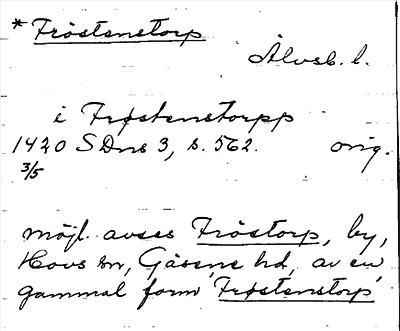 * Fröstenstorp
Älvsb. l.
i Frøstenstorpp
1420 SDns 3, s. 562. orig.
3/5
möjl. avses Fröstorp, by,
Hovs sn, Gäsene hd, av en
gammal form Frøstenstorp